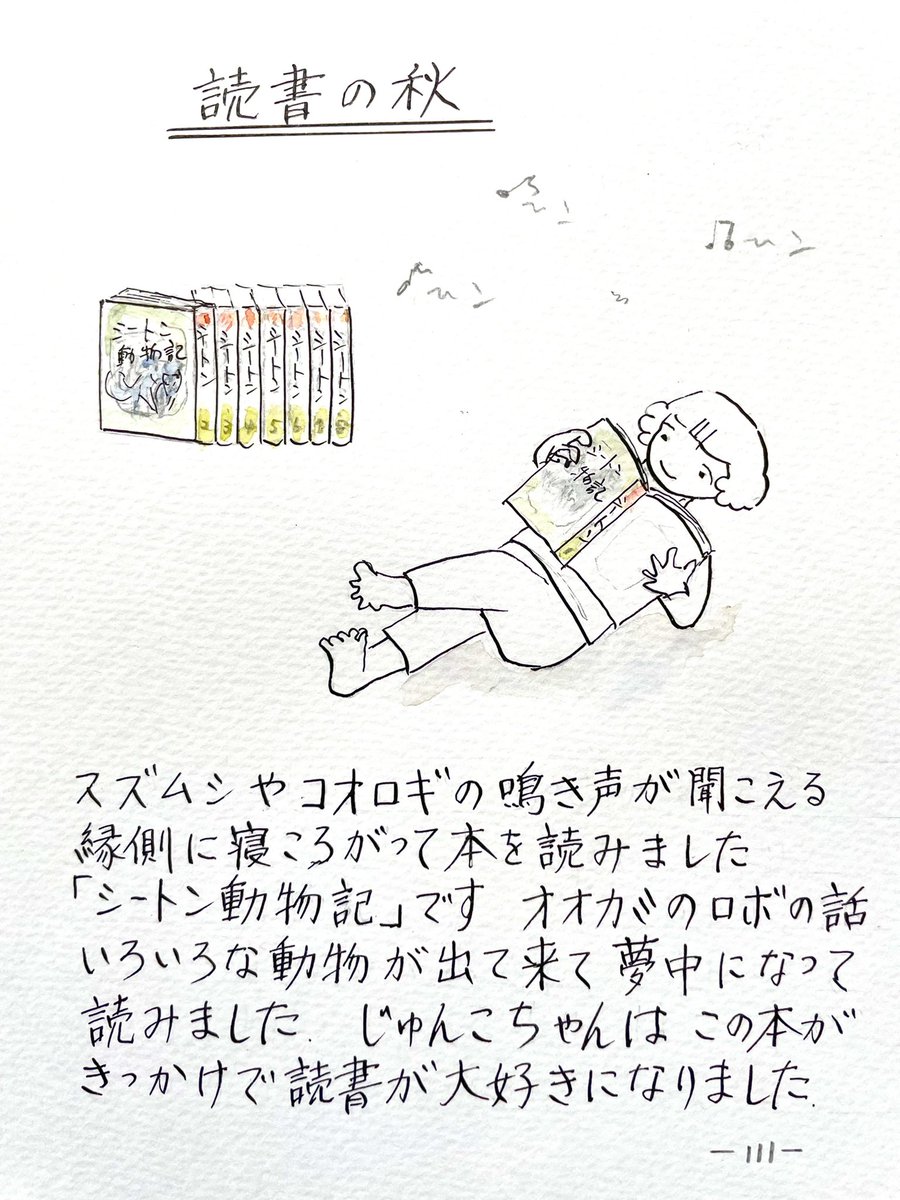 読書の秋
リーン
リーン
リーン
シートン
動物記
シートン
2
シートン
3
シートン
4
シートン
5
シートン
6
シートン
シートン
8
シートン
動物記
スズムシやコオロギの鳴き声が聞こえる
縁側に寝ころがって本を読みました
「シートン動物記」です オオカミのロボの話
いろいろな動物が出て来て夢中になって
読みました. じゅんこちゃんは この本が
きっかけで読書が大好きになりました.
-111-